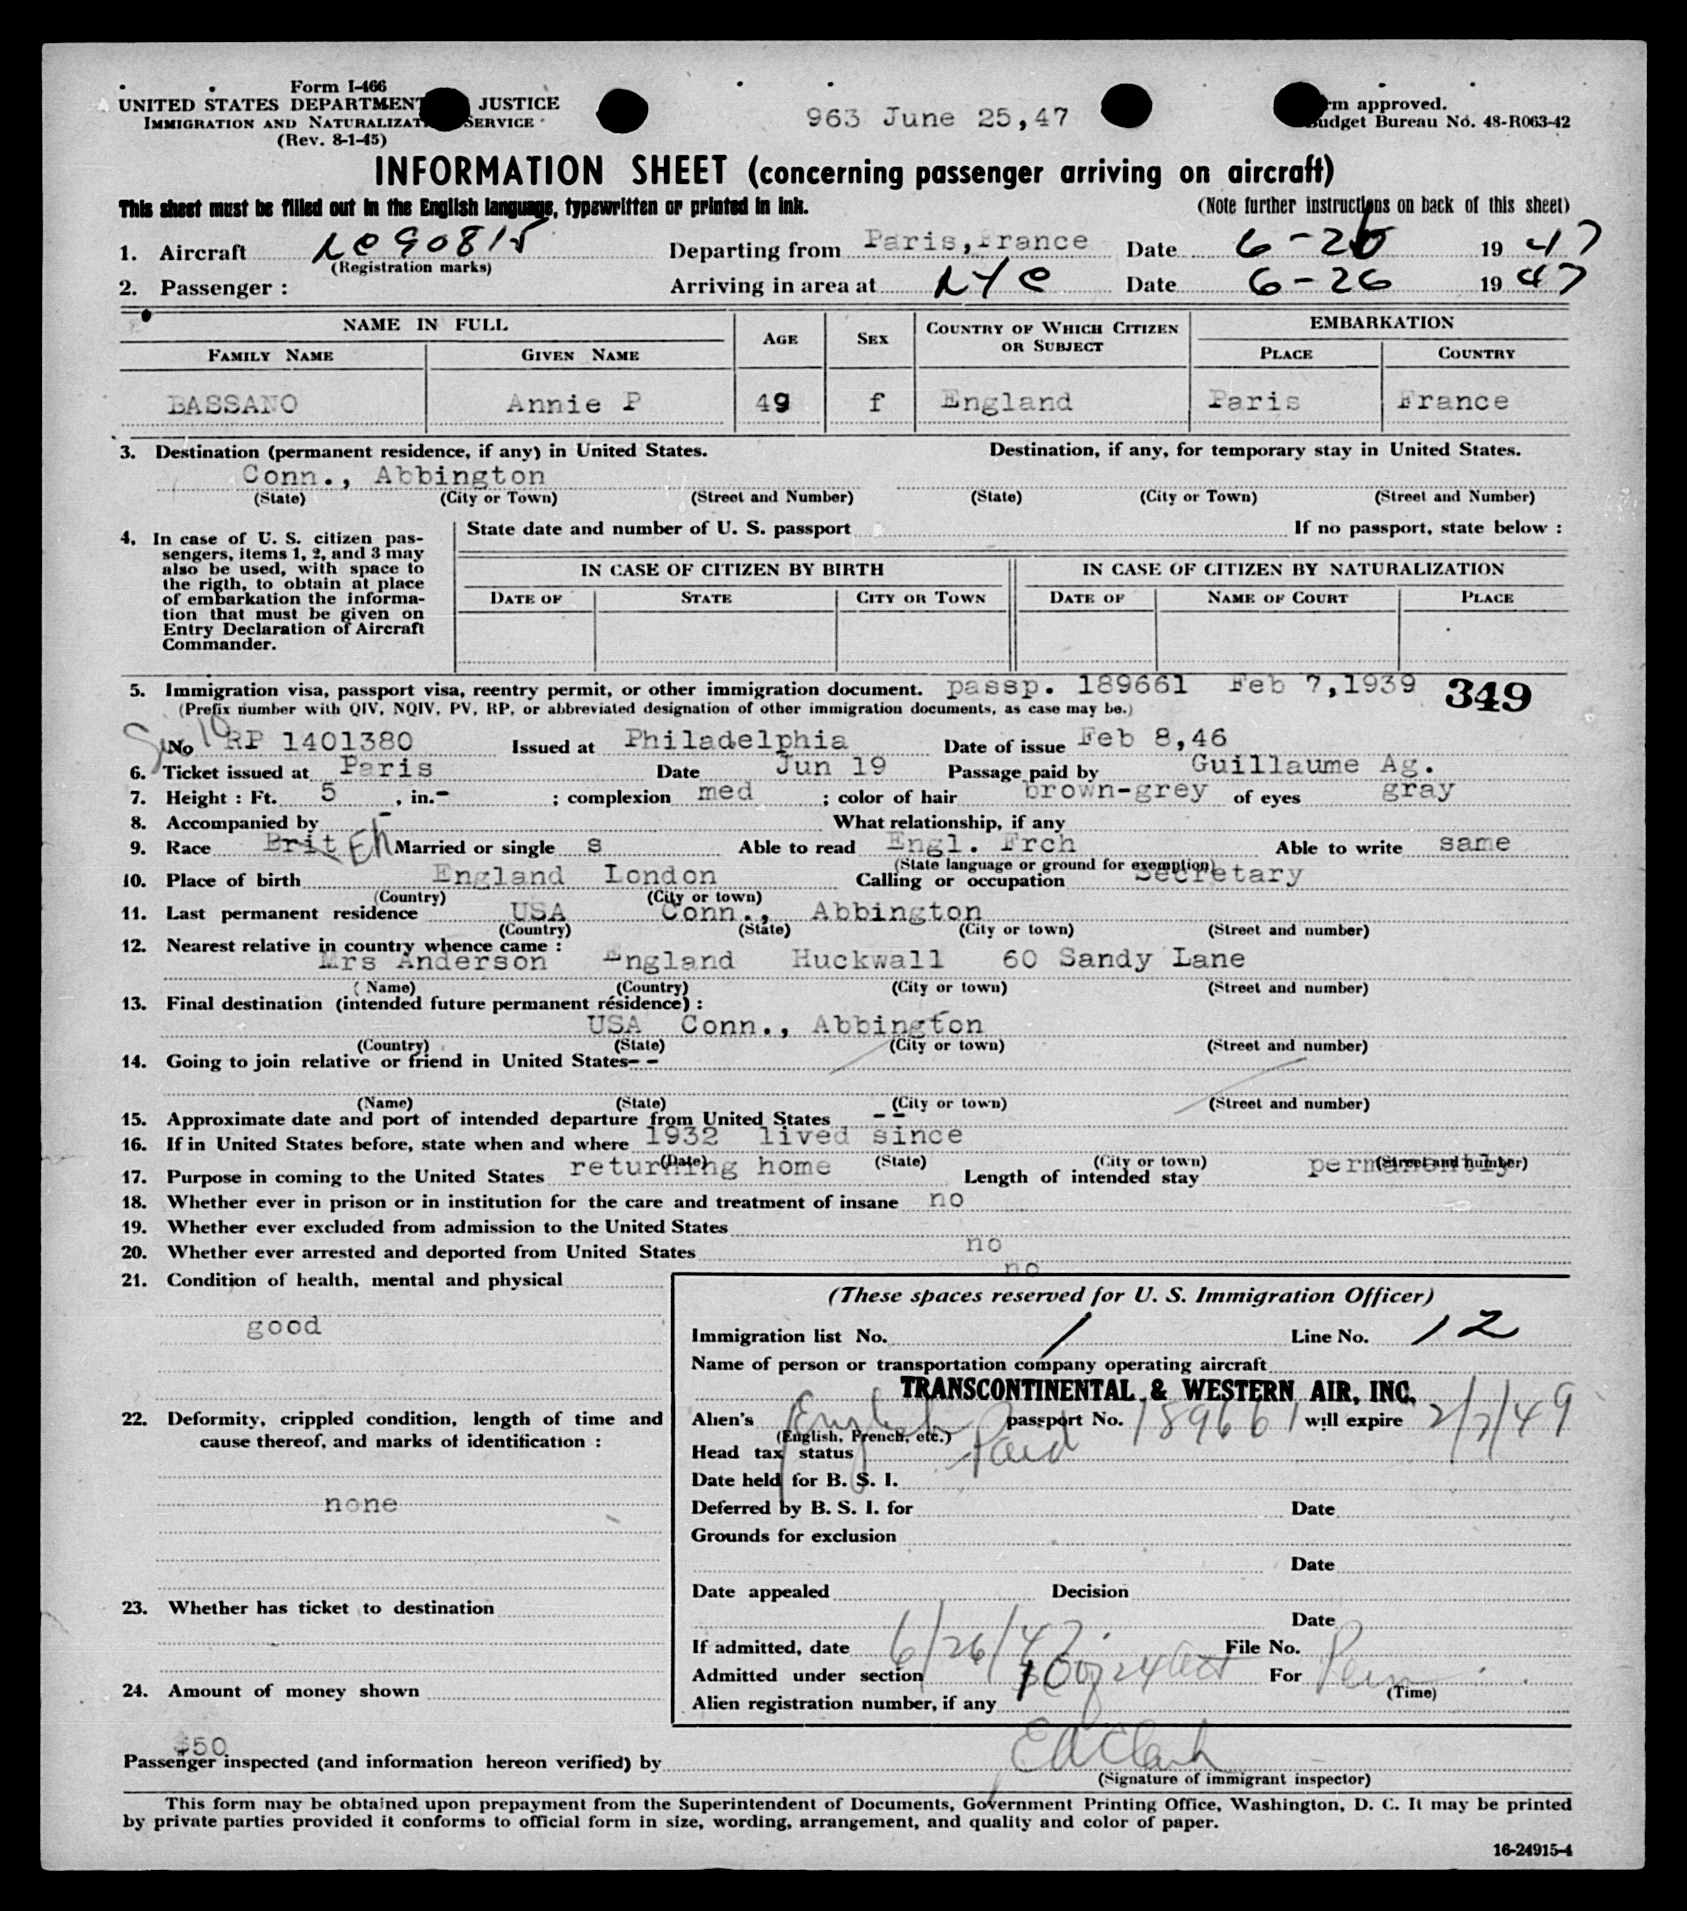 Form I-466
UNITED STATES DEPARTMENT JUSTICE
IMMIGRATION AND NATURALIZAT SERVICE
(Rev. 8-1-45)
963 June 25,47
rm approved.
Budget Bureau No. 48-R063-42
INFORMATION SHEET (concerning passenger arriving on aircraft)
This sheet must be filled out in the English language, typewritten or printed in ink.
(Note further instructions on back of this sheet)
1. Aircraft NC90815 Departing from Paris,France Date 6-26 1947
(Registration marks)
2. Passenger : Arriving in area at NYC Date 6-26 1947
NAME IN FULL AGE SEX COUNTRY OF WHICH CITIZEN OR SUBJECT EMBARKATION
FAMILY NAME GIVEN NAME PLACE COUNTRY
BASSANO Annie P 49 f England Paris France
3. Destination (permanent residence, if any) in United States. Destination, if any, for temporary stay in United States.
Conn., Abbington
(State) (City or Town) (Street and Number) (State) (City or Town) (Street and Number)
4. In case of U. S. citizen pas-
sengers, items 1, 2, and 3 may
also be used, with space to
the rigth, to obtain at place
of embarkation the informa-
tion that must be given on
Entry Declaration of Aircraft
Commander.
State date and number of U. S. passport If no passport, state below :
IN CASE OF CITIZEN BY BIRTH IN CASE OF CITIZEN BY NATURALIZATION
DATE OF STATE CITY OR TOWN DATE OF NAME OF COURT PLACE
5. Immigration visa, passport visa, reentry permit, or other immigration document. passp. 189661 Feb 7,1939 349
(Prefix number with QIV, NQIV, PV, RP, or abbreviated designation of other immigration documents, as case may be.)
No RP 1401380 Issued at Philadelphia Date of issue Feb 8,46
6. Ticket issued at Paris Date Jun 19 Passage paid by Guillaume Ag.
7. Height : Ft. 5 , in.- ; complexion med ; color of hair brown-grey of eyes gray
8. Accompanied by - What relationship, if any
9. Race Brit Eng Married or single s Able to read Engl. Frch Able to write same
(State language or ground for exemption)
10. Place of birth England London Calling or occupation Secretary
(Country) (City or town)
11. Last permanent residence USA Conn., Abbington
(Country) (State) (City or town) (Street and number)
12. Nearest relative in country whence came :
Mrs Anderson England Huckwall 60 Sandy Lane
(Name) (Country) (City or town) (Street and number)
13. Final destination (intended future permanent résidence) :
USA Conn., Abbington
(Country) (State) (City or town) (Street and number)
14. Going to join relative or friend in United States- -
(Name) (State) (City or town) (Street and number)
15. Approximate date and port of intended departure from United States - -
16. If in United States before, state when and where 1932 lived since
(Date) (State) (City or town) (Street and number)
17. Purpose in coming to the United States returning home Length of intended stay permanently
18. Whether ever in prison or in institution for the care and treatment of insane no
19. Whether ever excluded from admission to the United States
no
20. Whether ever arrested and deported from United States
no
21. Condition of health, mental and physical
good
22. Deformity, crippled condition, length of time and
cause thereof, and marks of identification :
none
23. Whether has ticket to destination
24. Amount of money shown
$50
(These spaces reserved for U. S. Immigration Officer)
Immigration list No. 1 Line No. 12
Name of person or transportation company operating aircraft
TRANSCONTINENTAL & WESTERN AIR, INC.
Alien's English passport No. 189661 will expire 2/7/49
(English, French, etc.)
Head tax status Paid
Date held for B. S. I.
Deferred by B. S. I. for Date
Grounds for exclusion
Date
Date appealed Decision
Date
If admitted, date 6/26/47 File No.
Admitted under section 24 Act For Perm
(Time)
Alien registration number, if any
Passenger inspected (and information hereon verified) by E A Clark
(Signature of immigrant inspector)
This form may be obtained upon prepayment from the Superintendent of Documents, Government Printing Office, Washington, D. C. It may be printed
by private parties provided it conforms to official form in size, wording, arrangement, and quality and color of paper.
16-24915-4